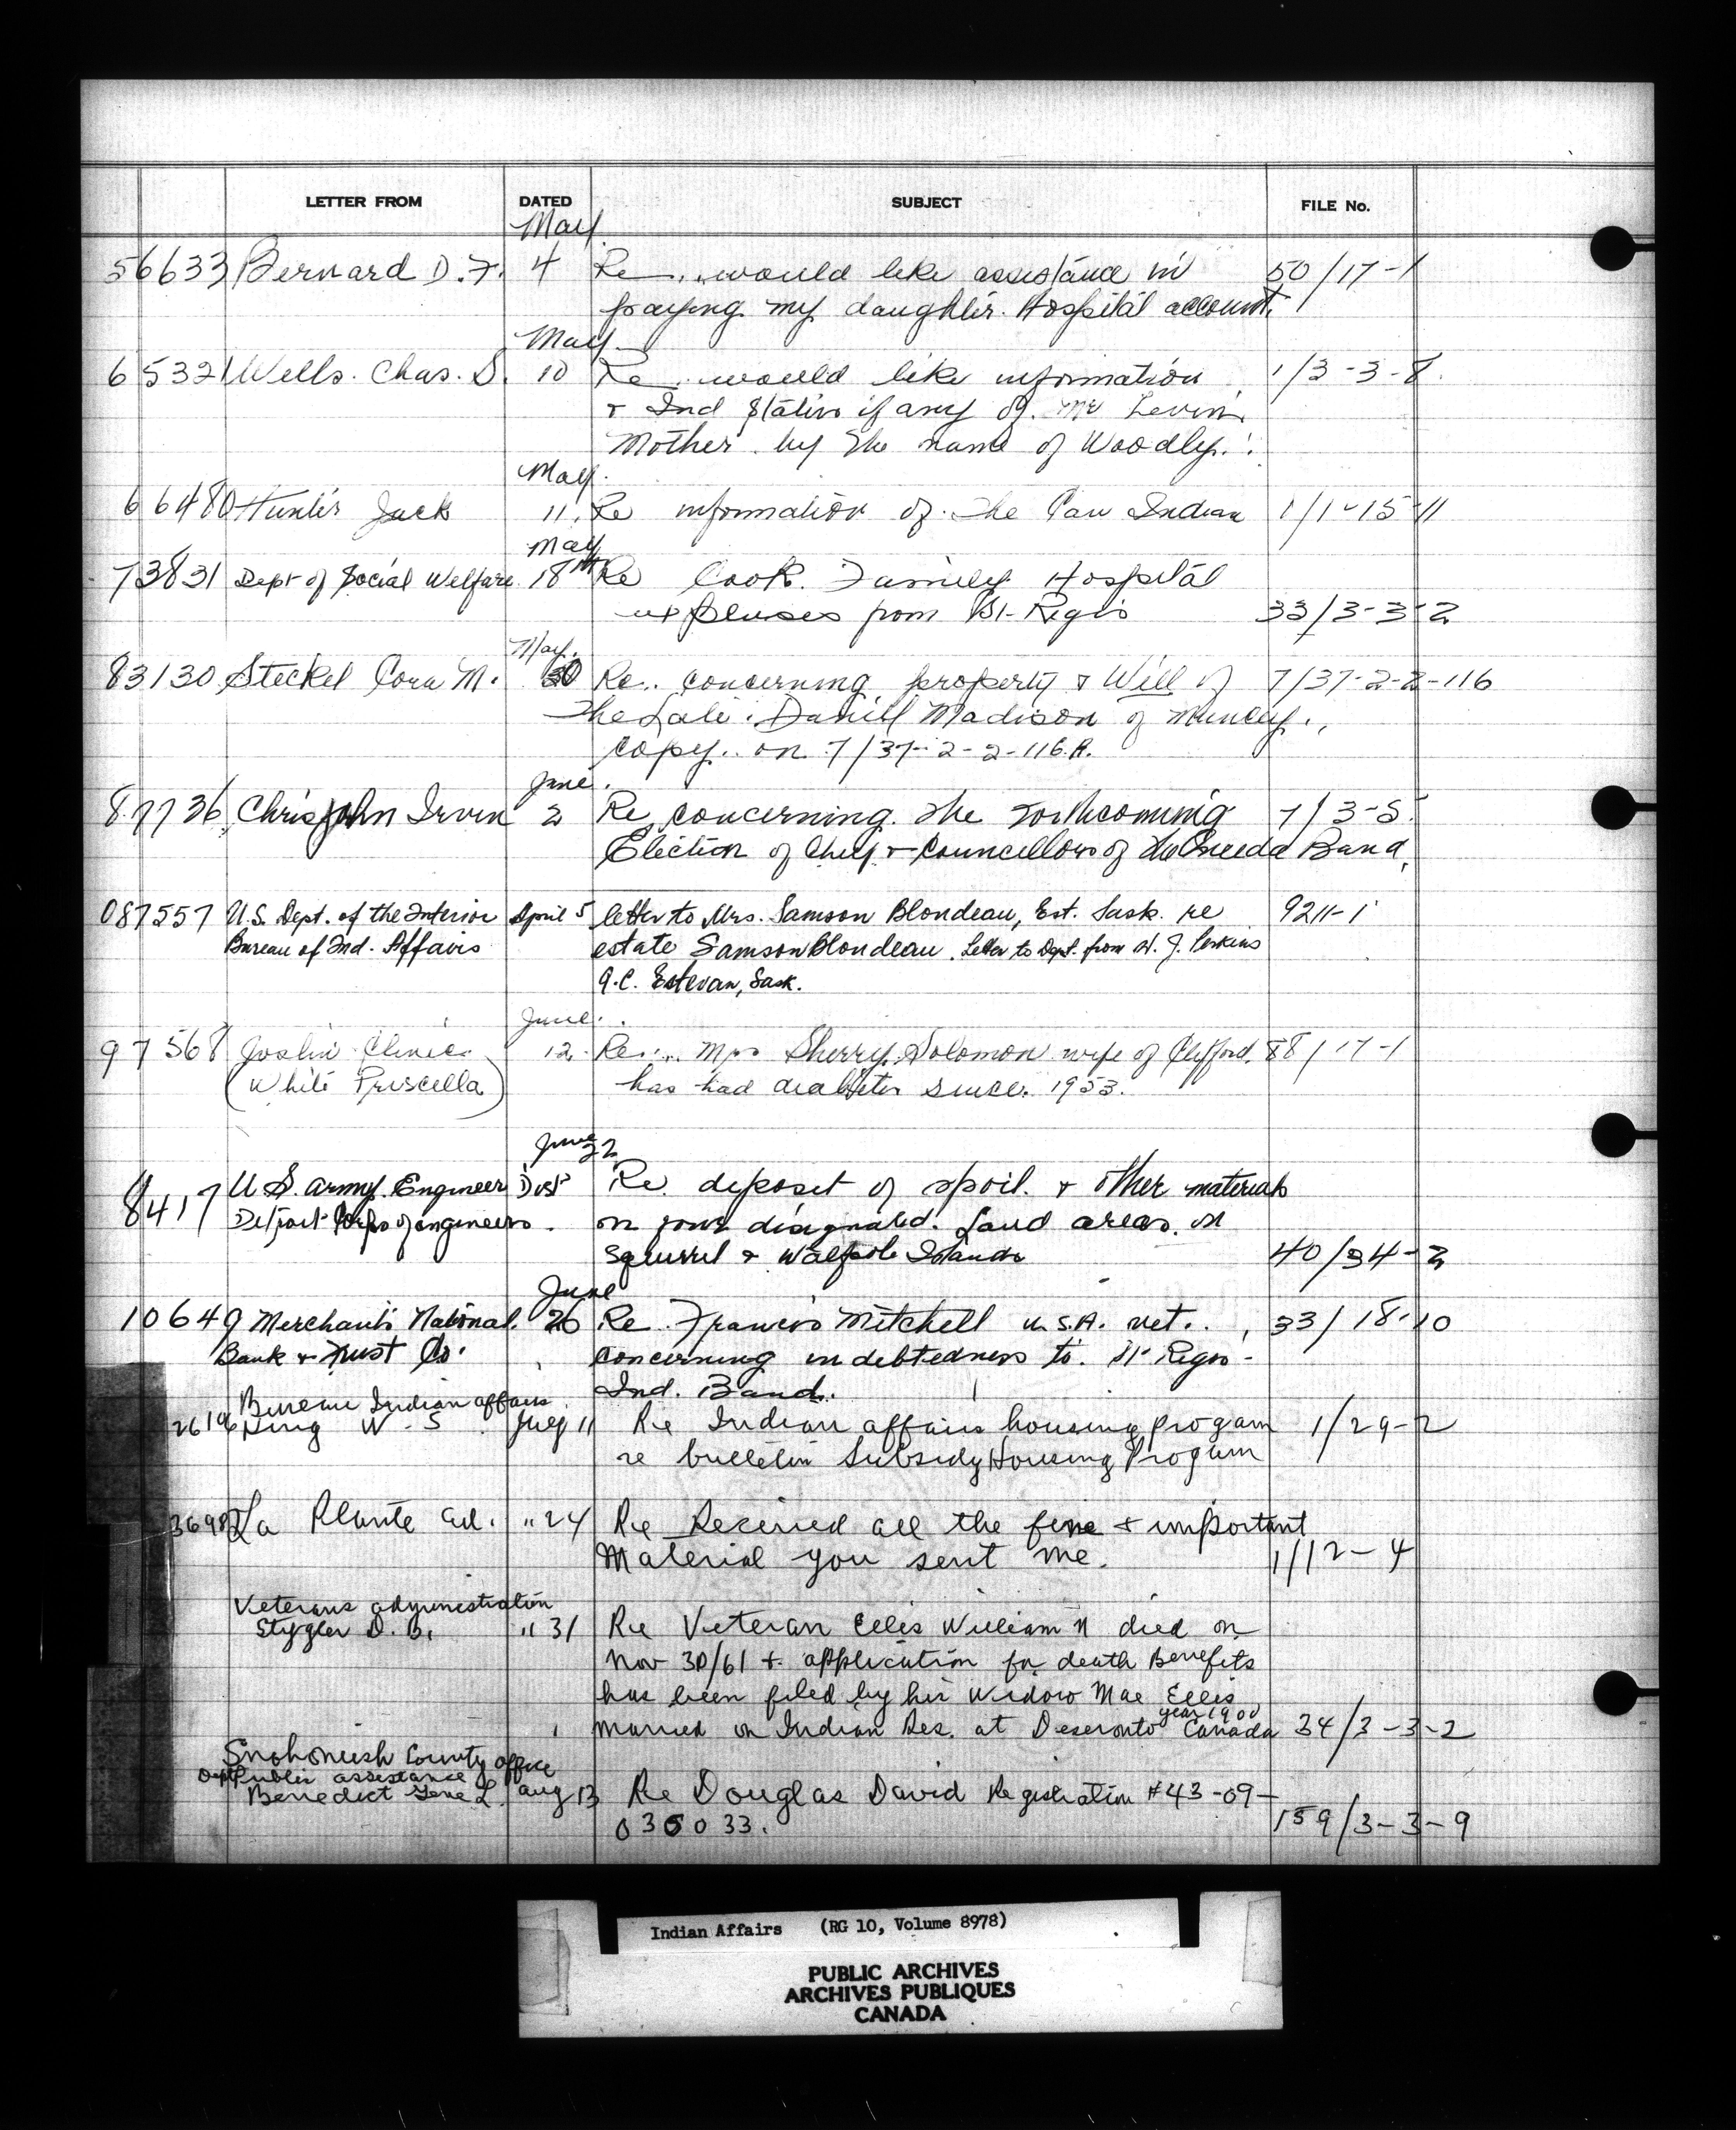 LETTER FROM DATED SUBJECT FILE No.
May
56633 Bernard D.F. 4 Re... would like assistance in 50/17-1
paying my daughter's Hospital account.
May
65321 Wells. Chas. S. 10 Re.. would like information 1/3-3-8
+ Ind status if any of. Mr Levin
Mother. by the name of Woodly.
May.
66480 Hunter Jack 11. Re information of. the Can Indian 1/1-15-11
May
73831 Dept of Social Welfare 18th Re Cook. Family Hospital
expenses from St-Regis 33/3-3-2
May.
83130 Steckel Cora M. 30 Re.. concerning property & Will of 7/37-2-2-116
the Late. Daniel Madison of Muncey.
copy.. on 7/37-2-2-116.A.
June.
87736 Chrisjohn Irvin 2 Re concerning. the Forthcoming 7/3-5
Election of Chief + Councellors of the Oneida Band.
087557 U.S. Dept. of the Interior April 5 letter to Mrs. Samson Blondeau, Est. Sask. re 9211-1
Bureau of Ind. Affairs estate Samson Blondeau. Letter to Dept. from H. J. Perkins
A.C. Estevan, Sask.
June.
97568 Joslin Clinic. 12. Re... Mrs Sherry Solomon wife of Clifford. 88/17-1
(White Priscella) has had diabetes since. 1953.
June 22
8417 U.S. Army. Engineer Dist Re. deposit of spoil. + other materials
Detroit Corps of engineers. on your designated. Land areas. on
Squirrel + Walpole Islands 40/34-2
June
10649 Merchants National. 26 Re. Francis Mitchell U.S.A. vet.. 33/18-10
Bank & Trust Co. concerning indebtedness to. St Regis-
Ind. Band.
Bureau Indian affairs
26196 King W.S. July 11 Re Indian affairs housing progam 1/29-2
re bulletin Subsidy Housing Progam
La Plante Ed. " 24 Re Received all the fine + important
Material you sent me. 1/12-4
Veterans administration
Stygler D.B. " 31 Re Veteran Ellis William N died on
Nov 30/61 + application for death Benefits
has been filed by his Widow Mae Ellis
year 1900
married on Indian Res. at Deseronto Canada 34/3-3-2
Snohomish County office
Dept Public assistance
Benedict Gene L. Aug 13 Re Douglas David Registration #43-09-
030033. 159/3-3-9
Indian Affairs (RG 10, Volume 8978)
PUBLIC ARCHIVES
ARCHIVES PUBLIQUES
CANADA